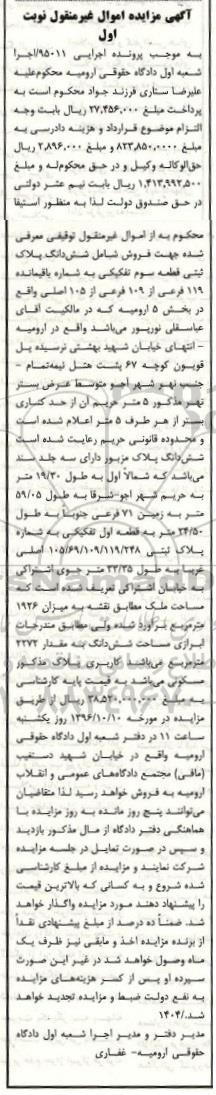 آگهی مزایده اموال غیرمنقول نوبت
اول
به موجب پرونده اجرایی ۹۵۰۱۱/اجرا
شعبه اول دادگاه حقوقی ارومیه محکوم‌علیه
علیرضا ستاری فرزند جواد محکوم است به
پرداخت مبلغ ۲۷,۴۵۶,۰۰۰ ریال بابت وجه
التزام موضوع قرارداد و هزینه دادرسی به
مبلغ ۸۲۳,۸۵۰,۰۰۰۰ و مبلغ ۲,۸۹۶,۰۰۰ ریال
حق‌الوکاله وکیل و در حق محکوم‌له و مبلغ
۱,۴۱۳,۹۹۲,۵۰۰ ریال بابت نیم عشر دولتی
در حق صندوق دولت لذا به منظور استیفا
محکوم به از اموال غیرمنقول توقیفی معرفی
شده جهت فروش شامل شش‌دانگ پلاک
ثبتی قطعه سوم تفکیکی به شماره باقیمانده
۱۱۹ فرعی از ۱۰۹ فرعی از ۱۰۵ اصلی واقع
در بخش ۵ ارومیه که در مالکیت آقای
عباسقلی نورپور می‌باشد واقع در ارومیه
– انتهای خیابان شهید بهشتی نرسیده پل
قویون کوچه ۶۷ پشت هتل نیمه‌تمام –
جنب نهر شهر اجو متوسط عرض بستر
نهر مذکور ۵ متر حریم آن از حد کناری
بستر از هر طرف ۵ متر اعلام شده است
و محدوده قانونی حریم رعایت شده است
شش‌دانگ پلاک مزبور دارای سه جلد سند
می‌باشد که شمالاً اول به طول ۱۹/۳۰ متر
به حریم شهر اجو–شرقا به طول ۵۹/۰۵
متر به زمینی ۷۱ فرعی جنوبا به طول
۳۴/۵۰ متر به قطعه اول تفکیکی به شماره
پلاک ثبتی ۱۰۵/۶۹/۱۰۹/۱۱۹/۲۴۸ اصلی
غربا به طول ۳۳/۳۵ متر جوی اشتراکی
به خیابان اشتراکی تعریف شده است که
مساحت ملک مطابق نقشه به میزان ۱۹۲۶
مترمربع برآورد شده ولی مطابق مندرجات
ابرازی مساحت شش‌دانگ بنه مقدار ۲۲۷۲
مترمربع می‌باشد کاربری پلاک مذکور
مسکونی می‌باشد به قیمت پایه کارشناسی
به مبلغ ریال از طریق
مزایده در مورخه ۱۳۹۶/۱۰/۱۰ روز یکشنبه
ساعت ۱۱ در دفتر شعبه اول دادگاه حقوقی
ارومیه واقع در خیابان شهید دستغیب
(مافی) مجتمع دادگاه‌های عمومی و انقلاب
ارومیه به فروش خواهد رسید لذا متقاضیان
می‌توانند پنج روز مانده به روز مزایده با
هماهنگی دفتر دادگاه از مال مذکور بازدید
و سپس در صورت تمایل در جلسه مزایده
شرکت نمایند و مزایده از مبلغ کارشناسی
شده شروع و به کسانی که بالاترین قیمت
را پیشنهاد دهند مورد مزایده واگذار خواهد
شد. ضمناً ده درصد از مبلغ پیشنهادی نقداً
از برنده مزایده اخذ و مابقی نیز ظرف یک
ماه وصول خواهد شد در غیر این صورت
سپرده او پس از کسر هزینه‌های مزایده
به نفع دولت ضبط و مزایده تجدید خواهد
شد./۱۴۰۴
مدیر دفتر و مدیر اجرا شعبه اول دادگاه
حقوقی ارومیه– غفاری